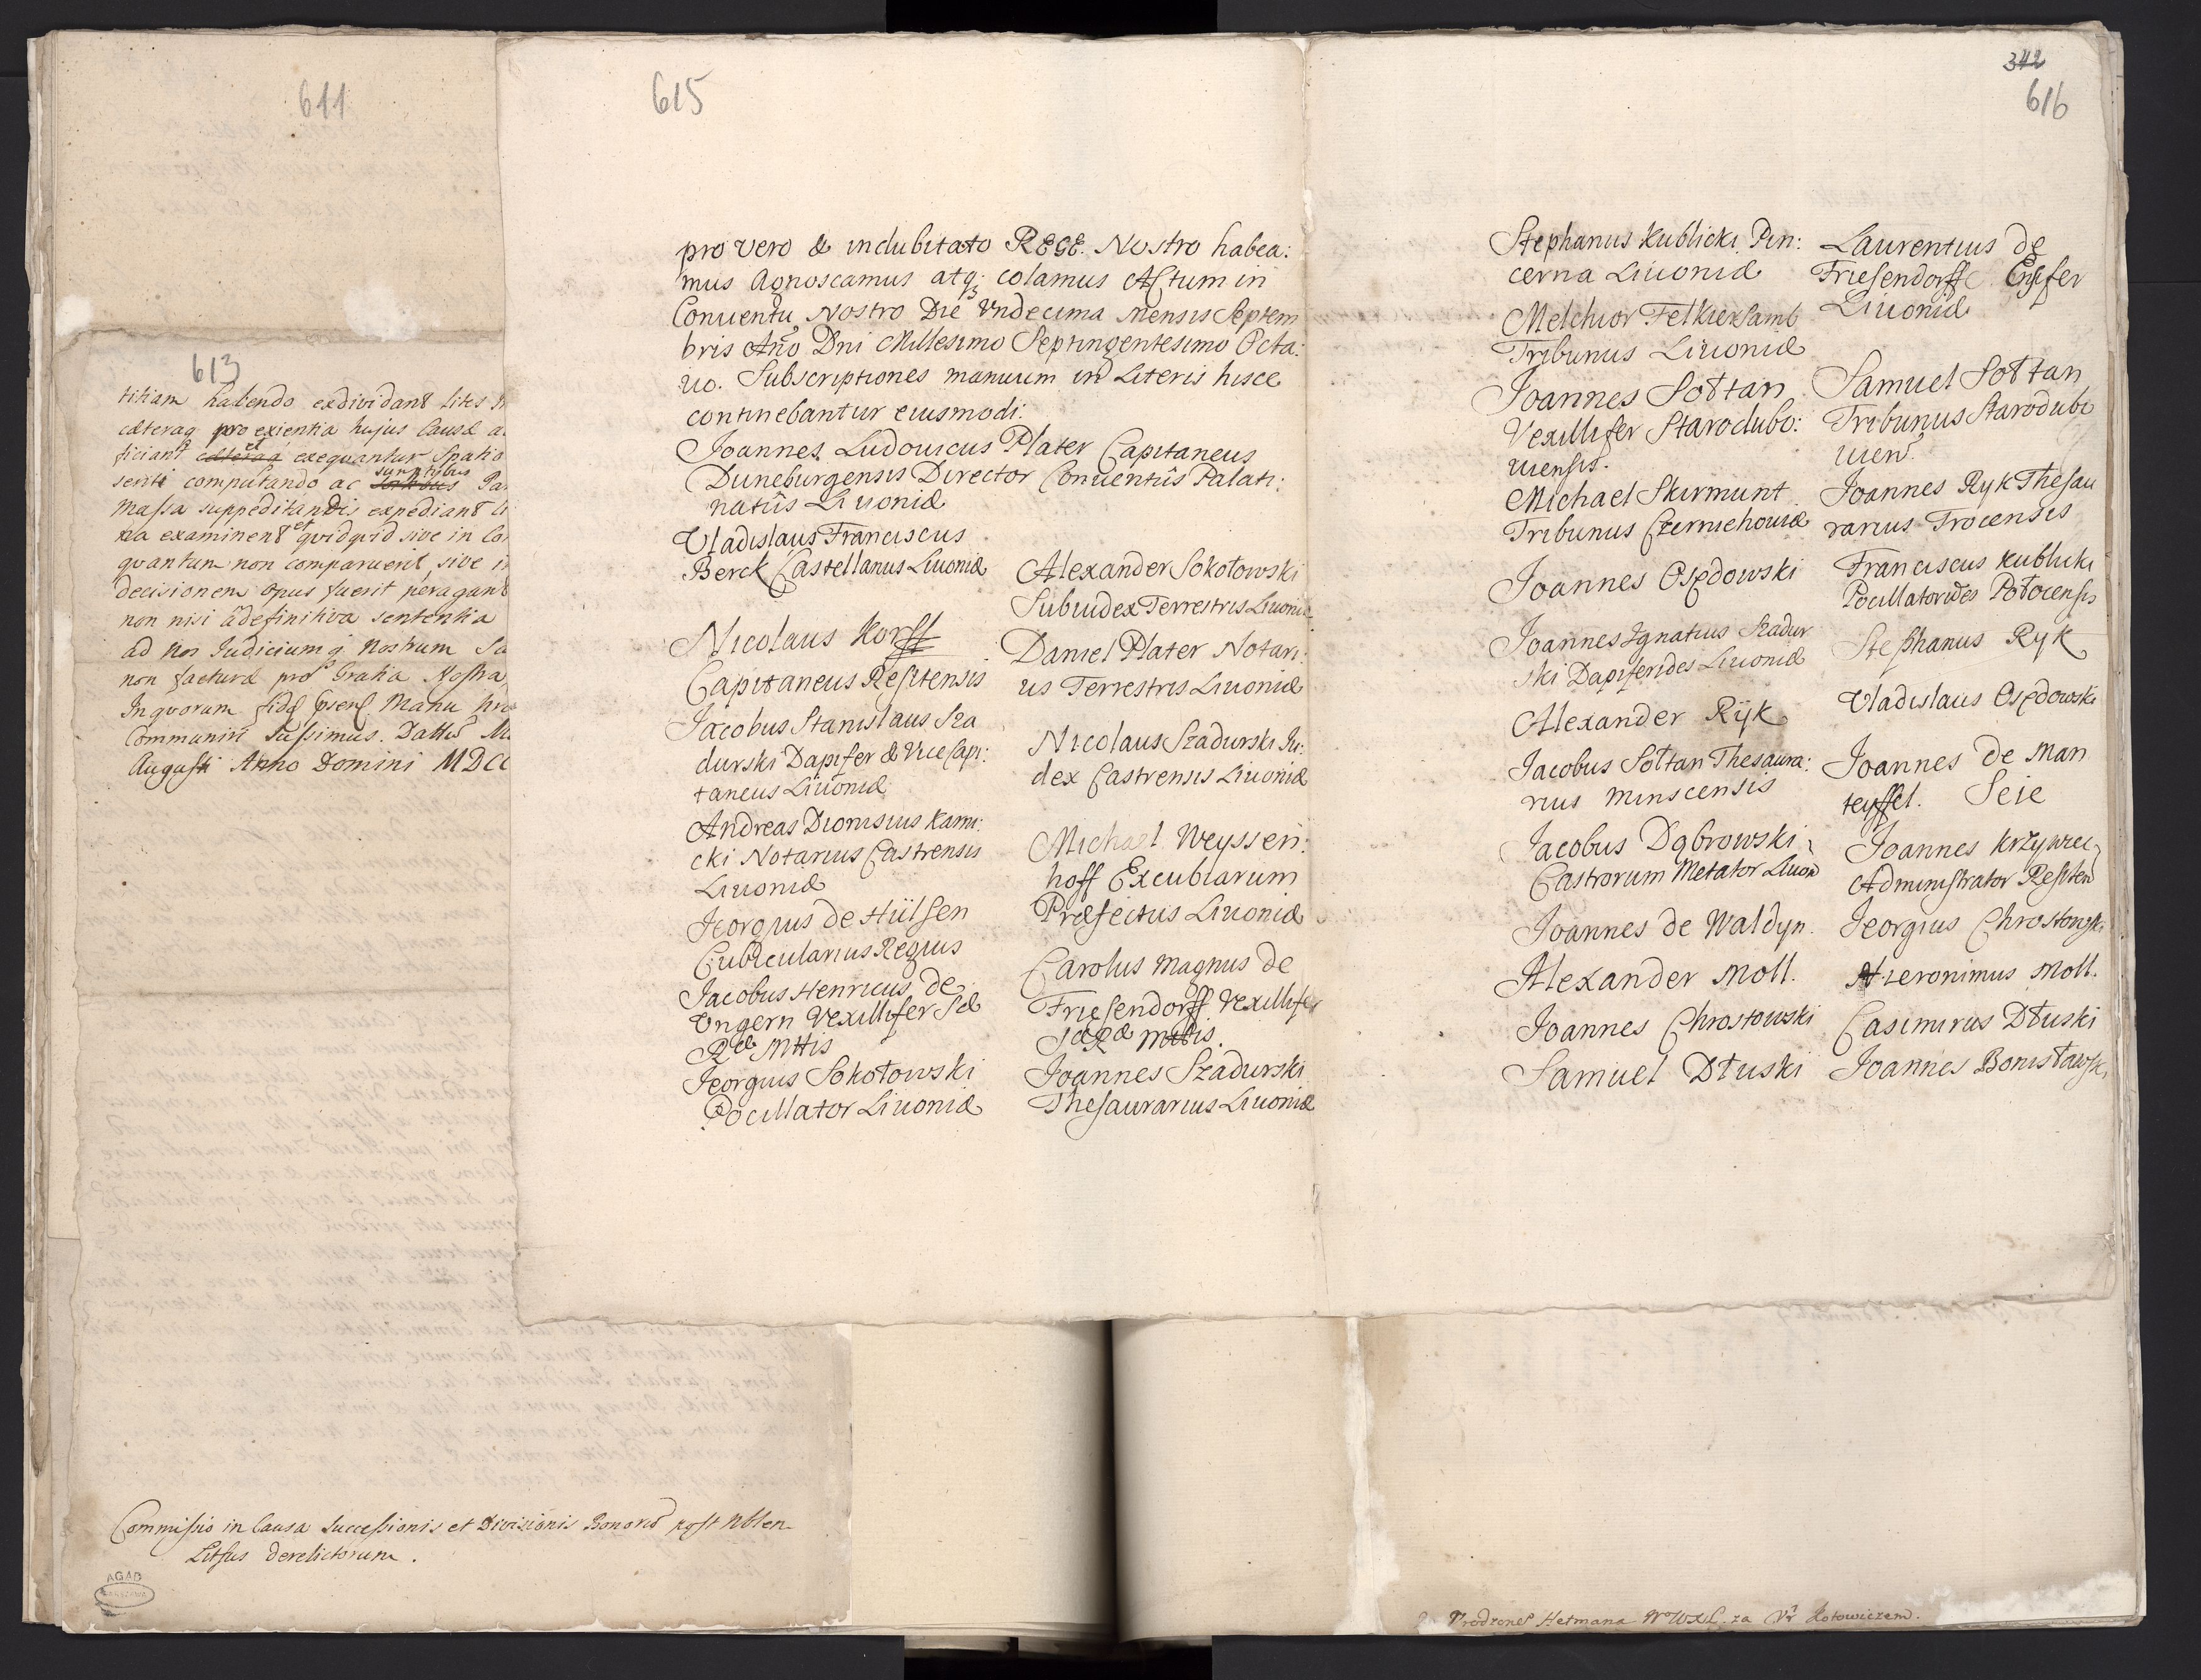 611
613
titiam habendo exdividant lites
cæteraq pro exientia hujus Causæ
ficiant et exequantur Spatio
senti computando ac sumptibus
Massa suppeditandis expediant
na examinent et qvidqvid sive in
qvantum non comparuerit, sive
decisionem opus fuerit peragant
non nisi â definitiva sententia
ad Nos Judiciumq Nostrum
non facturæ pro Gratia Nostra
In qvorum fidem Manu
Communiri Jussimus. Datt
Augusti Anno Domini MDCC
Commissio in Causa Successionis et Divisionis Bonorum post
derelictorum.
AGAD
615
pro vero & indubitato REGE Nostro habea:
mus Agnoscamus atq; colamus Actum in
Conuentu Nostro Die Vndecima Mensis Septem
bris Año Dni Millesimo Septingentesimo Octa:
uo. Subscriptiones manuum in Literis hisce
continebantur eiusmodi.
Joannes Ludouicus Plater Capitaneus
Duneburgensis Director Conuentûs Palati:
natûs Liuoniæ
Vladislaus Franciscus
Berck Castellanus Liuoniæ
Nicolaus Korff
Capitaneus Resitensis
Jacobus Stanislaus Sza
durski Dapifer & Vice Capi:
taneus Liuoniæ
Andreas Dionisius Kami:
cki Notarius Castrensis
Liuoniæ
Georgius de Hülsen
Cubicularius Regius
Jacobus Henricus de
Vngern Vexillifer Sæ
Ræ Mttis
Georgius Sokołowski
Pocillator Liuoniæ
Alexander Sokołowski
Subiudex Terrestris Liuoniæ
Daniel Plater Notari:
us Terrestris Liuoniæ
Nicolaus Szadurski Ju:
dex Castrensis Liuoniæ
Michael Weyssen:
hoff Excubiarum
Præfectus Liuoniæ
Carolus Magnus de
Friesendorff Vexillifer
Sæ Ræ Mttis.
Joannes Szadurski
Thesaurarius Liuoniæ
342
616
Stephanus Kublicki Pin:
cerna Liuoniæ
Melchior Felkierzamb
Tribunus Liuoniæ
Joannes Sołtan
Vexillifer Starodubo:
uiensis.
Michael Skirmunt
Tribunus Czerniehouiæ
Joannes Osędowski
Joannes Ignatius Szadur
ski Dapiferides Liuoniæ
Alexander Ryk
Jacobus Sołtan Thesaura:
rius Minscensis
Jacobus Dąbrowski
Castrorum Metator Liuon
Joannes de Waldyn.
Alexander Moll.
Joannes Chrostowski
Samuel Dłuski
Laurentius de
Friesendorff Ensifer
Liuoniæ
Samuel Sołtan
Tribunus Starodubo
uien
Joannes Ryk Thesau
rarius Trocensis
Franciscus Kublicki
Pocillatorides Połocensis
Stephanus Ryk
Vladislaus Osędowski
Joannes de Man
teyffel. Seie
Joannes Krzywiec
Administrator Resiten
Georgius Chrostowski
Hieronimus Moll.
Casimirus Dłuski
Joannes Bonisławski
Hetmana WWXL. za Kotowiczem.